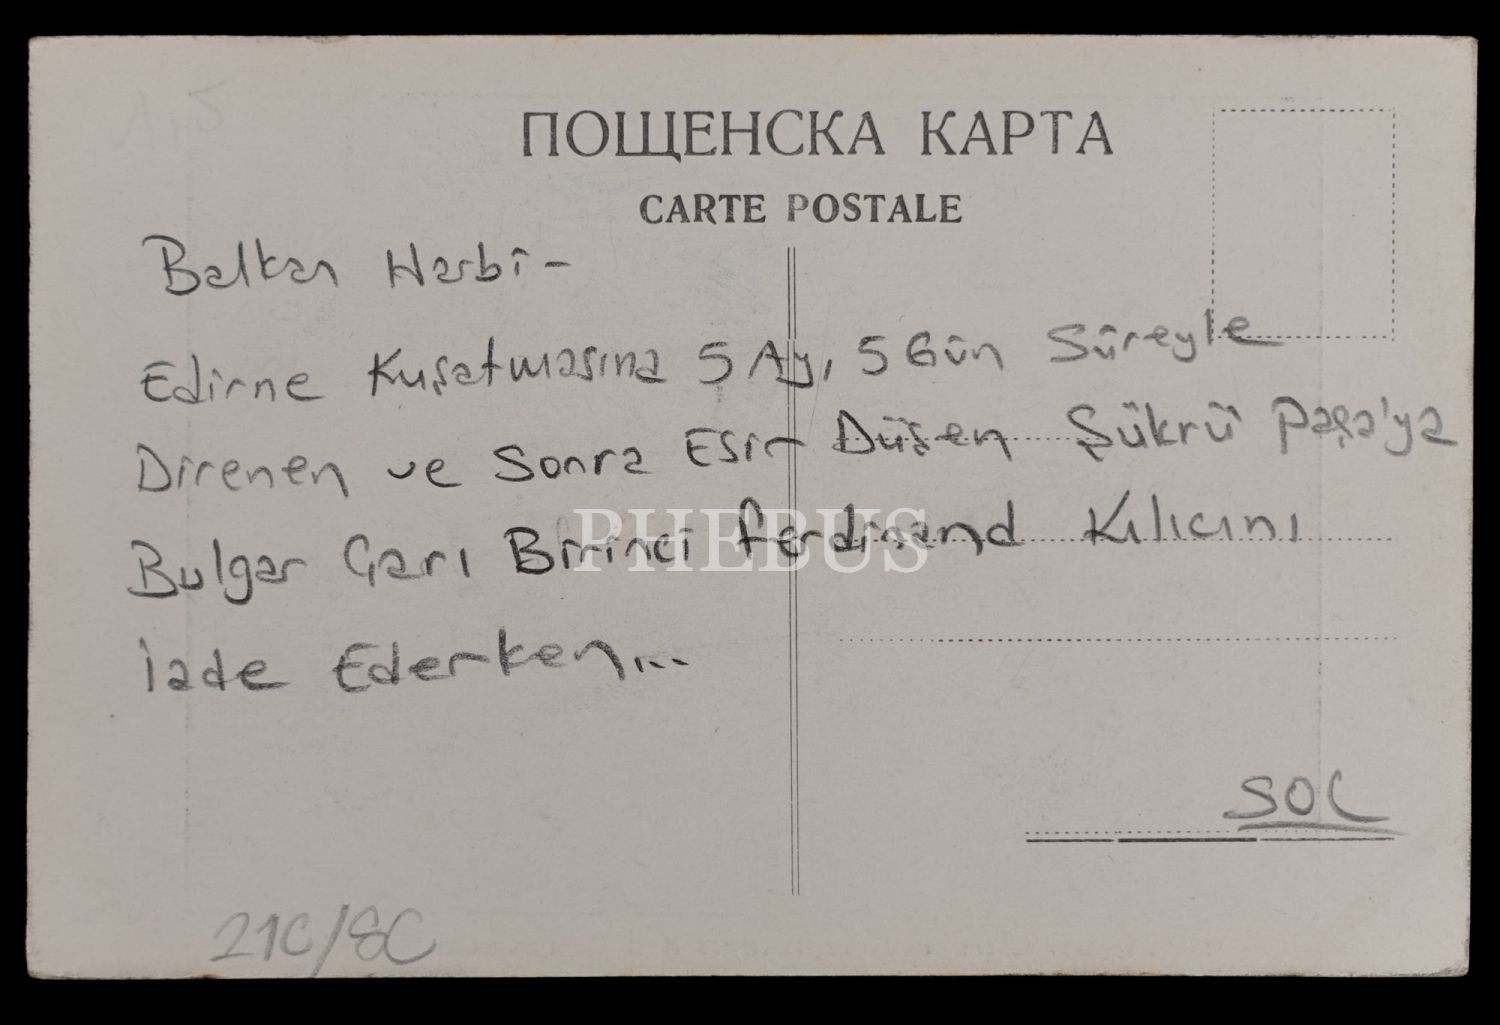 1,5
ПОЩЕНСКА КАРТА
CARTE POSTALE
Balkan Harbi -
Edirne Kuşatmasına 5 Ay, 5 Gün Süreyle
Direnen ve Sonra Esir Düşen Şükrü Paşa'ya
Bulgar Çarı Birinci Ferdinand Kılıcını
İade Ederken...
PHEBUS
SOL
21C/8C